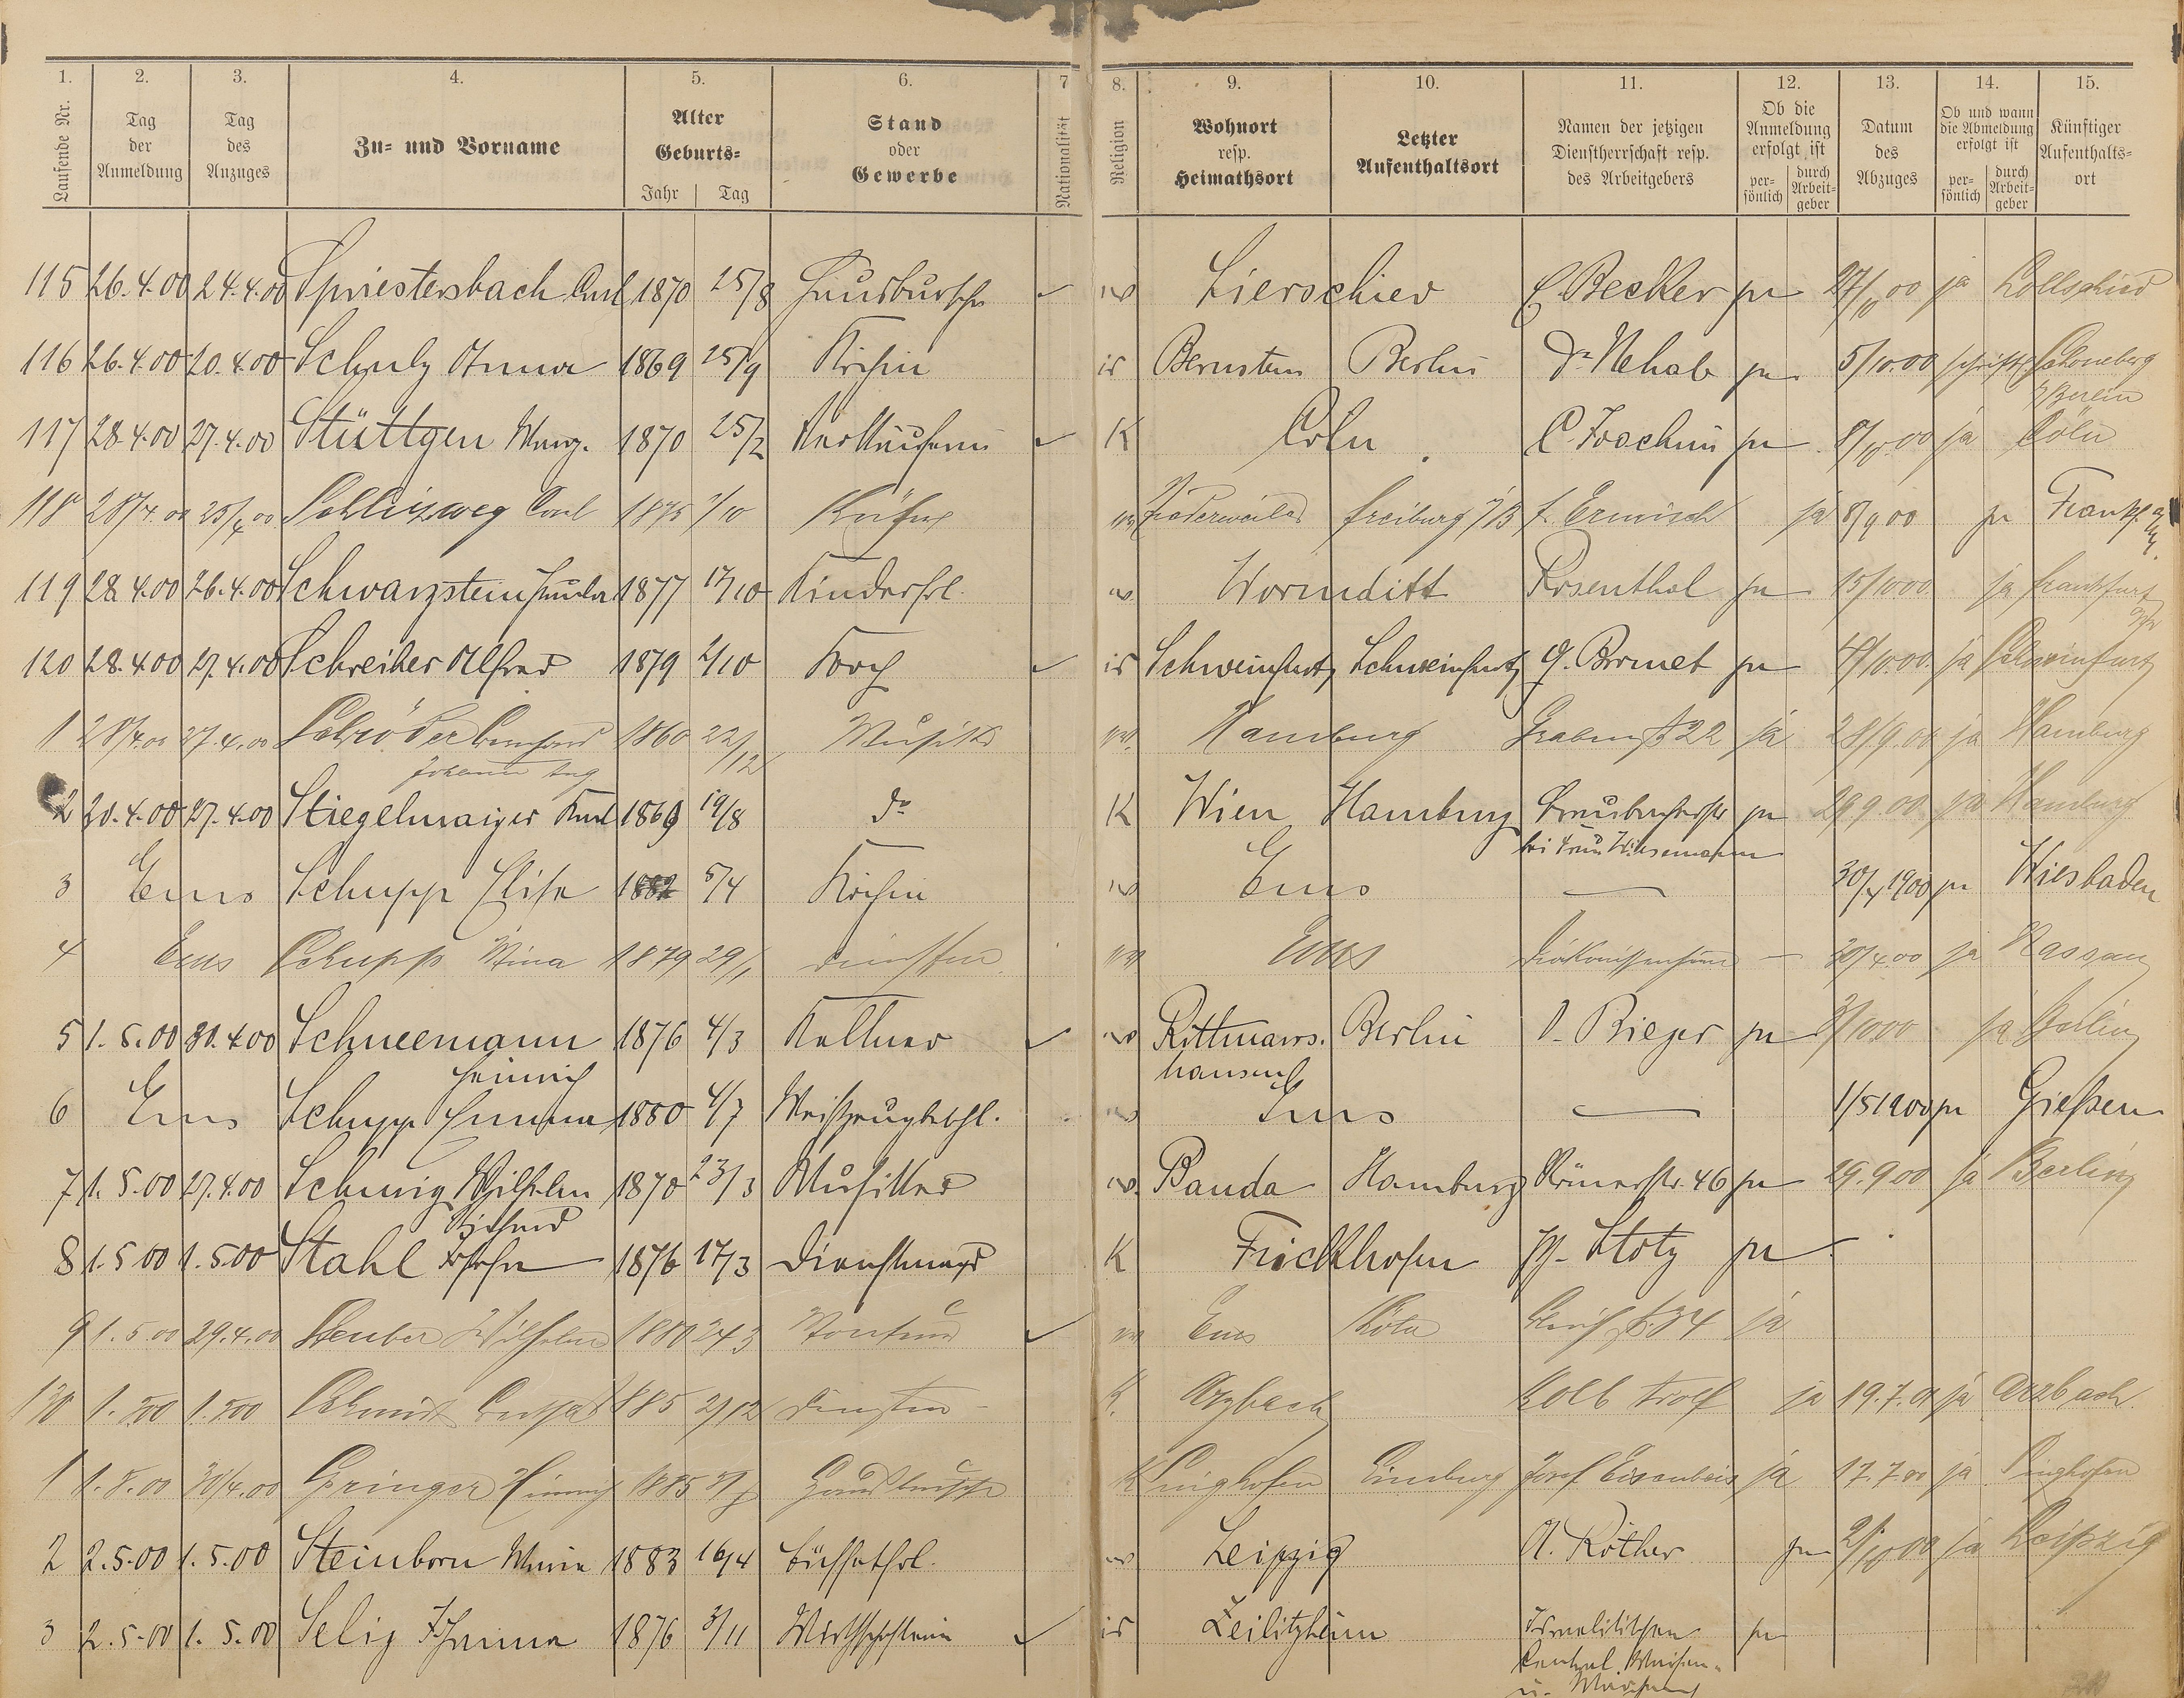 1. 2. 3. 4. 5. 6. 7 8. 9. 10. 11. 12. 13. 14. 15.
Laufende Nr.
Tag der Anmeldung
Tag des Anzuges
Zu- und Vorname
Alter
Geburts-
Jahr | Tag
Stand oder Gewerbe
Nationalität
Religion
Wohnort resp. Heimathsort
Letzter Aufenthaltsort
Namen der jetzigen Dienstherrschaft resp. des Arbeitgebers
Ob die Anmeldung erfolgt ist
persönlich | durch Arbeitgeber
Datum des Abzuges
Ob und wann die Abmeldung erfolgt ist
persönlich | durch Arbeitgeber
Künftiger Aufenthaltsort
115 26.4.00 24.4.00 Spriestersbach Carl 1870 25/8 Hausbursche Lierschied C. Becker ja 27/10 00 ja Lollschied
116 26.4.00 20.4.00 Schulz Anna 1869 25/9 Köchin is Bernstein Berlin Dr. Nehab ja 5/10.00 schriftl. Schöneberg
b/Berlin
117 28.4.00 27.4.00 Stüttgen Marg. 1870 25/2 Verkäuferin K Cöln C. Joachim ja 8/10.00 ja Cöln
118 28/4.00 25/4 00 Schleizweg Carl 1875 Küfer Freiburg i/B F. Ermisch ja 8/9 00 ja Frankf. a/M.
119 28.4.00 26.4.00 Schwarzstein 1877 17/10 Kinderfrl. Wormditt Rosenthal ja 15/10 00 ja Frankfurt
120 28.4.00 27.4.00 Schreiber Alfred 1879 2/10 Koch is Schweinfurt Schweinfurt Bermet ja 4/10.00. ja Schweinfurt
1 28/4.00 27.4.00 Schröder Bernhard 1860 22/12 Musiker Hamburg Grabenstr 22 ja 28/9.00 ja Hamburg
Johann Aug
2 20.4.00 27.4.00 Stiegelmaier Karl 1869 19/8 do K Wien Hamburg ja 29.9.00 ja Hamburg
bei Frau Wiesemann
3 Ems Schupp Elise 1882 5/4 Köchin Ems — 30/4 1900 ja Wiesbaden
4 Ems Schupp Mina 1879 29/11 Ems Diakonissenheim — 30/4.00 ja Nassau
5 1.5.00 30.4.00 Schneemann 1876 4/3 Kellner Rittmarshausen Berlin Rieger ja 3/10 00 ja Berlin
Heinrich
6 Ems Schupp Emma 1880 4/7 Weißzeugbeschl. Ems — 1/5 1900 ja Gießen
7 1.5.00 27.4.00 Schwig Wilhelm 1870 23/3 Musiker Banda Hamburg Römerstr. 46 ja 29.9.00 ja Berlin
Richard
8 1.5 00 1.5.00 Stahl 1876 17/3 Dienstmagd K Frickhofen Stotz ja
9 1.5.00 29.4.00 Steuber Wilhelm 1880 24 3 Ems Köln 34 ja
130 1.5.00 1.5.00 Schmidt 1885 2/12 K. Arzbach Kolb Adolf ja 19.7.01 ja Arzbach.
1 1.5.00 30/4.00 Springer 1885 Hausbursche K Singhofen Limburg Josef Eisenbeis ja 17.7.00 ja Singhofen
2 2.5.00 1.5.00 Steinborn Maria 1883 16/4 Büffetfrl. Leipzig A. Röther ja 2/10 00 ja Leipzig
3 2.5.00 1.5.00 Selig Johanna 1876 3/11 Wirthschafterin is Zeilitzheim Israelitischen ja
Central Waisen-